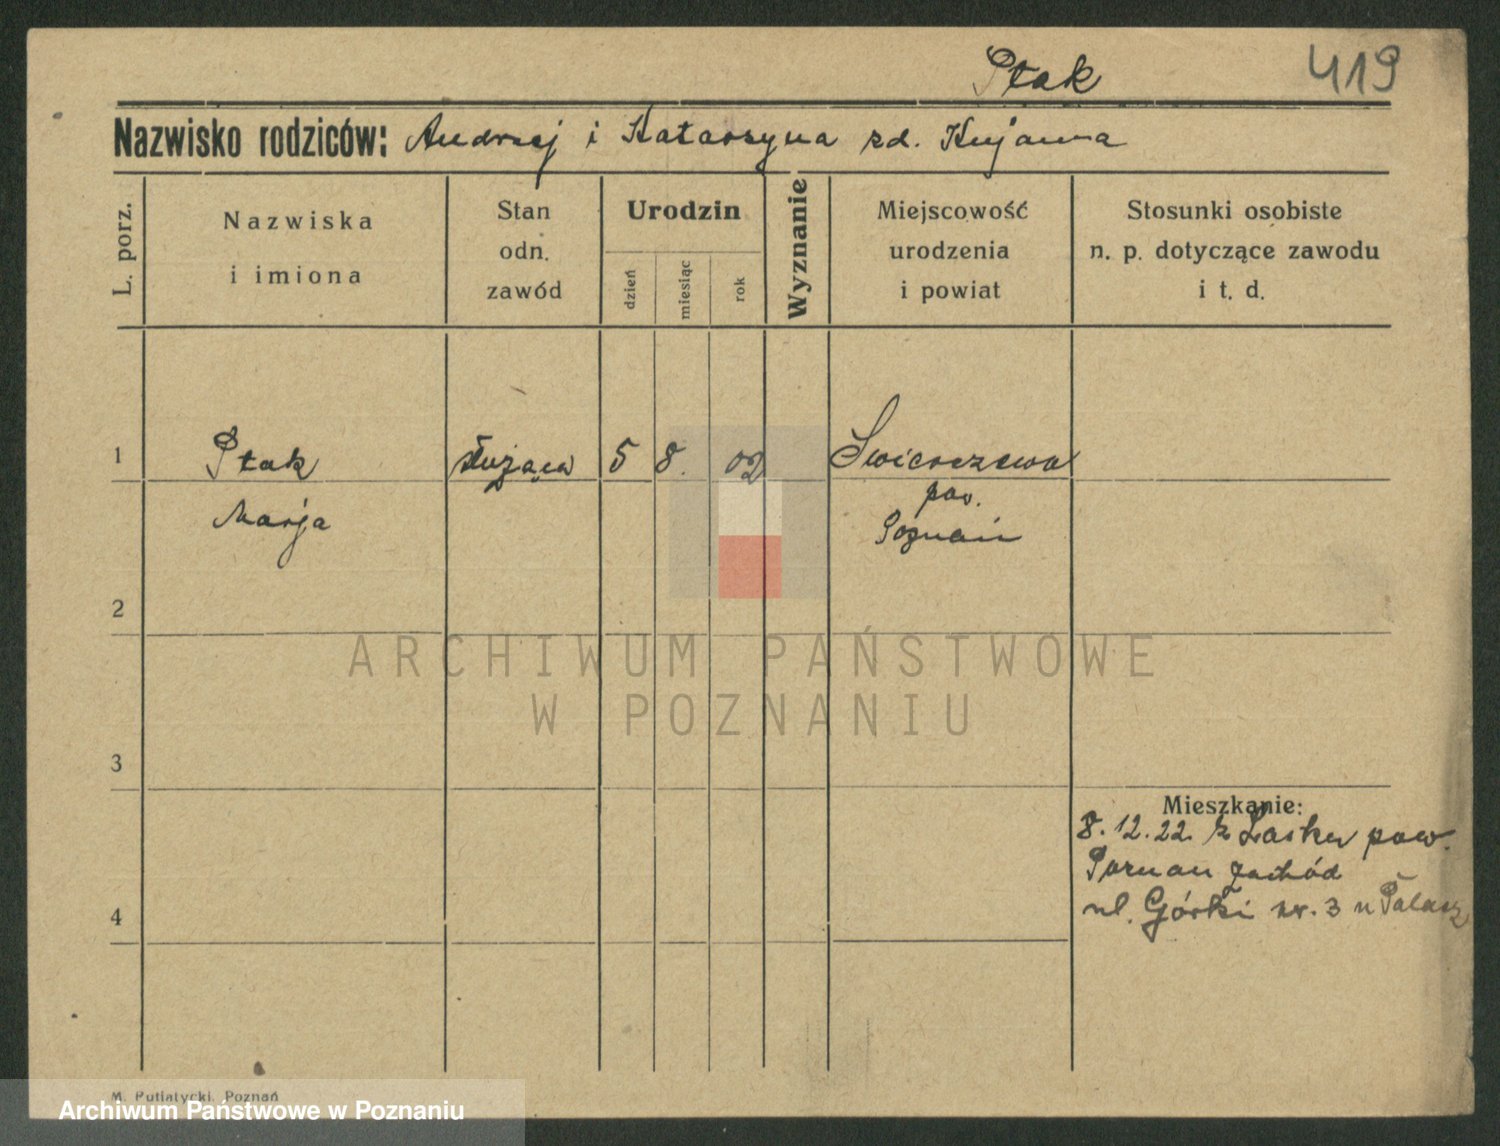 Ptak 419
Nazwisko rodziców: Andrzej i Katarzyna zd. Kujawa
L. porz.
Nazwiska
i imiona
Stan
odn.
zawód
Urodzin
dzień
miesiąc
rok
Wyznanie
Miejscowość
urodzenia
i powiat
Stosunki osobiste
n. p. dotyczące zawodu
i t. d.
1 Ptak służąca 5 8. 02 Swierczewo
pow.
Marja Poznań
2
ARCHIWUM PAŃSTWOWE
W POZNANIU
3
Mieszkanie:
8.12.22 z Lasku pow.
Poznan zachód
4 ul. Górki nr. 3 u Palacz
M. Putiatycki, Poznań
Archiwum Państwowe w Poznaniu